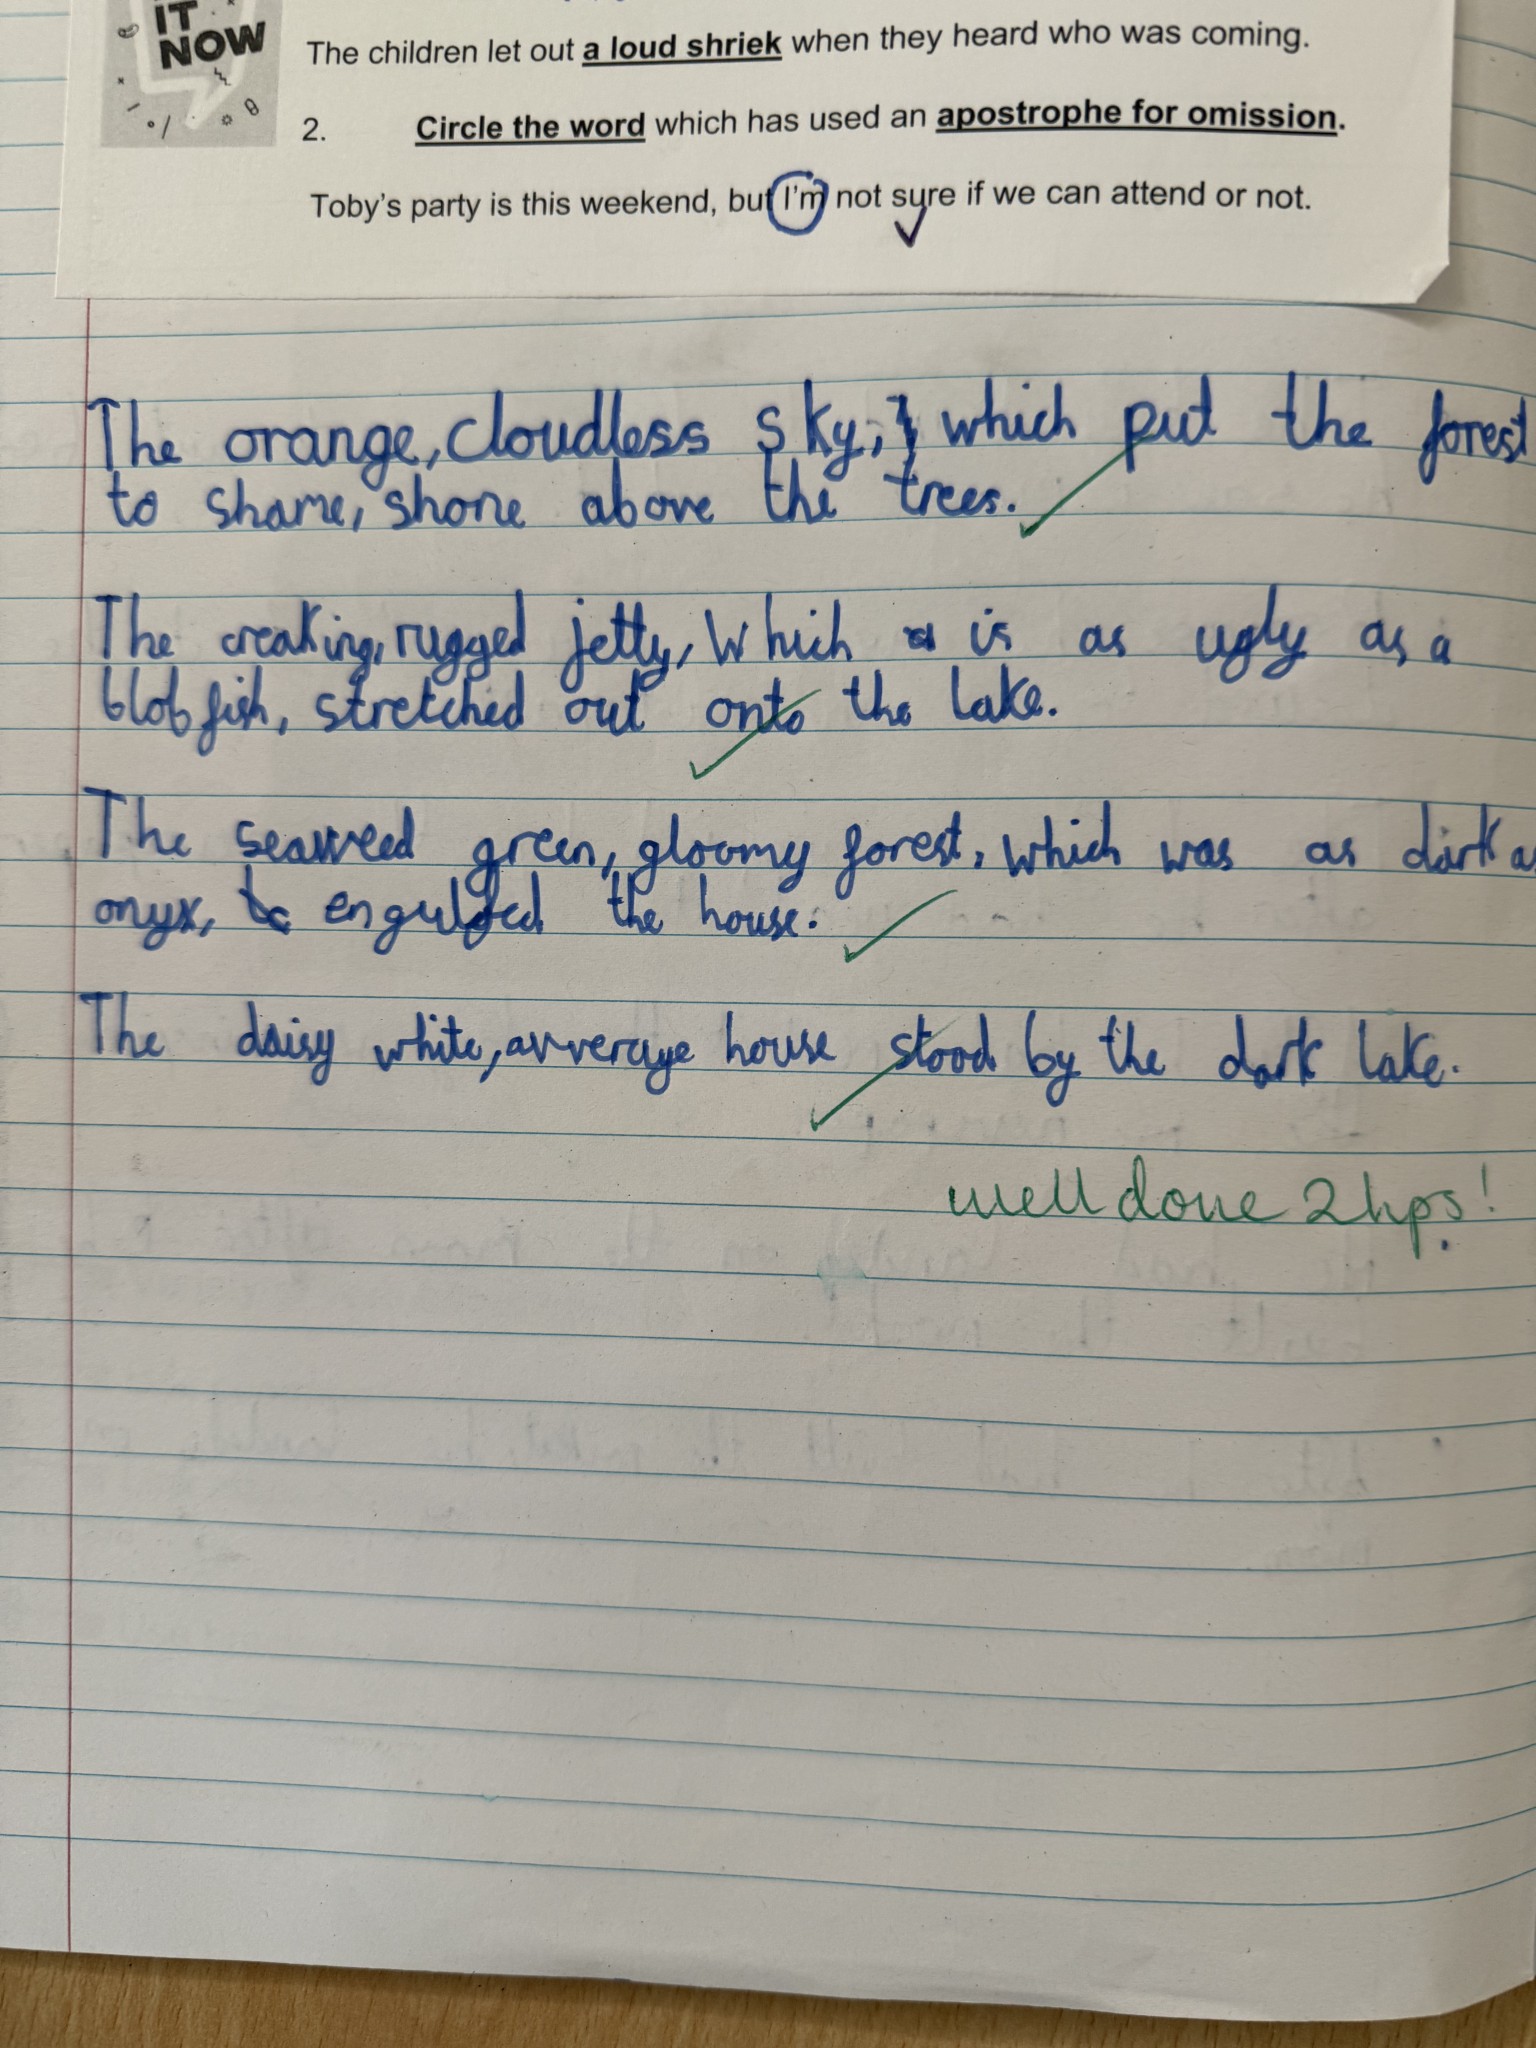 IT
NOW
The children let out a loud shriek when they heard who was coming.
2. Circle the word which has used an apostrophe for omission.
Toby's party is this weekend, but I'm not sure if we can attend or not.
The orange, cloudless sky, which put the forest
to shame, shone above the trees.
The creaking, rugged jetty, which is as ugly as a
blobfish, stretched out onto the lake.
The seaweed green, gloomy forest, which was as dark as
onyx, engulfed the house.
The daisy white, avverage house stood by the dark lake.
well done 2hps!